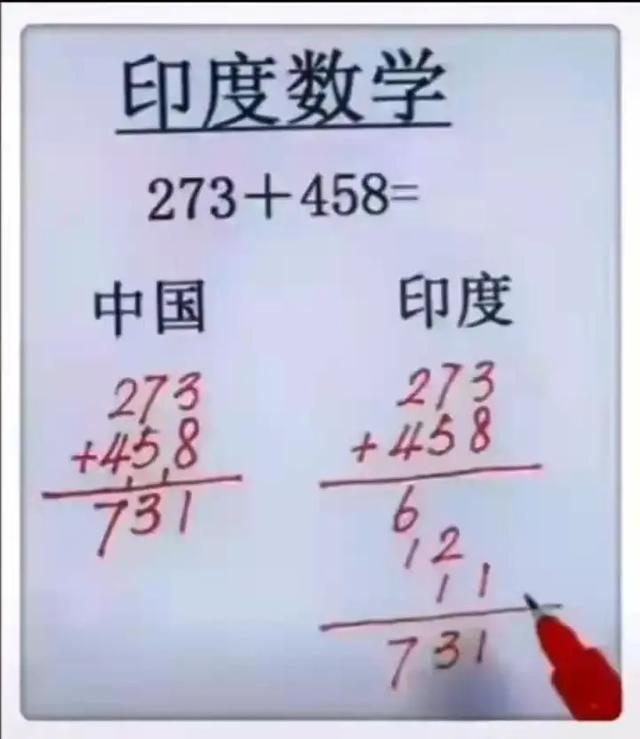 印度数学
273+458=
中国
273
+458
731
印度
273
+458
6
12
11
731